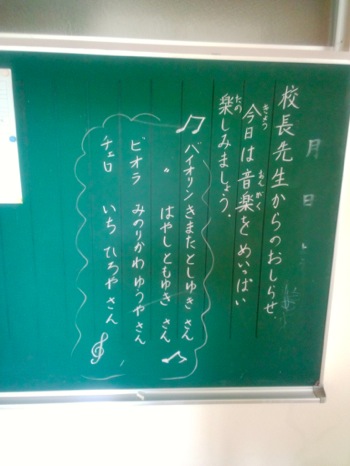 月 日
校長先生からのおしらせ.
今日は音楽をめいっぱい
きょう おんがく
楽しみましょう.
たの
バイオリン きまたとしゆき さん
〃 はやしともゆき さん
ビオラ みのりかわゆうや さん
チェロ いち ひろや さん